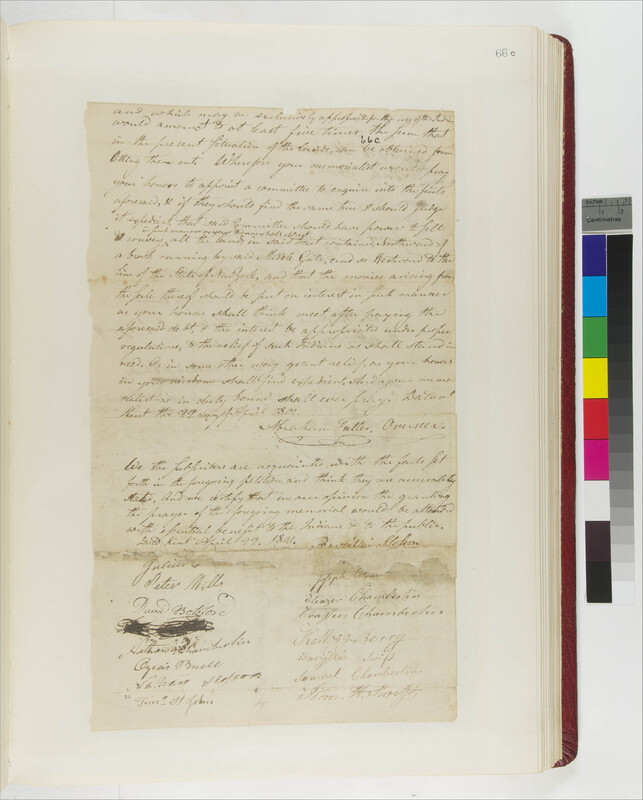 66 c
and which may be exclusively appropriated for the use of the Indians
would amount to at least five times the sum that
66c
in the present situation of the lands, can be obtained from
letting them out. Wherefore your memorialist would pray
your honors to appoint a committee to enquire into the facts
aforesaid, & if they should find the same true & should judge
it expedient that said Committee should have power to sell
& convey, all the lands in said tract contained, Northward of
a brook running by said Middle Gate, and so Westward to the
line of the State of New York, and that the monies arising from
the sale thereof should be put on interest in such manner
as your honors shall think meet, after paying the
aforesaid debt, & the interest be appropriated under proper
regulations, to the relief of such Indians as shall stand in
need, or, in some other way grant relief, as your honors
in your wisdom shall find expedient, And your memo-
rialist as in duty bound shall ever pray. Dated at
Kent the 22 day of April 1801.
Abraham Fuller, Overseer.
We the subscribers are acquainted with the facts set
forth in the foregoing petition, and think they are accurately
stated, And we certify that in our opinion the granting
the prayer of the foregoing memorial would be attended
with essential benefit to the Indians & to the public.
Dated Kent April 22. 1801.
Peter Mills
David Botsford
Nathan Chamberlin
Cyrus Buell
St John
Joseph
Eliezer Chamberlin
Chamberlin
Berry
Barzillai Swift
Samuel Chamberlin
Inches
1
2
Centimetres